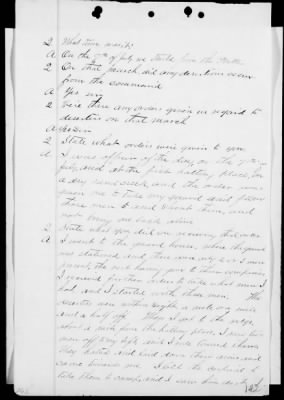 Q What time was it?
A On the 7th of July we started from the Platte
Q On that march did any desertions occur
from the command
A Yes sir
Q Were there any orders given in regard to
deserters on that march
A Yes Sir
Q State what orders were given to you
A I was officer of the day on the 7th
July, and at the first halting place, on
a dry sand creek and the order was
given me to take my guard and follow
those men to and shoot them, and
not bring one back alive
Q State what you did on receiving that order
A I went to the guard house, where the guard
was stationed and there were only 2 or 3 men
present, the rest having gone to their companies
I received further orders to take what men I
had, and I started with three men. The
deserters were within sight a mile or a mile
and a half off. When I got to the edge
about a mile from the halting place, I saw two
men off my left and I rode toward them,
they halted and laid down their arms and
came towards me. I told the corporal to
take them to camp, and I saw him do it
142